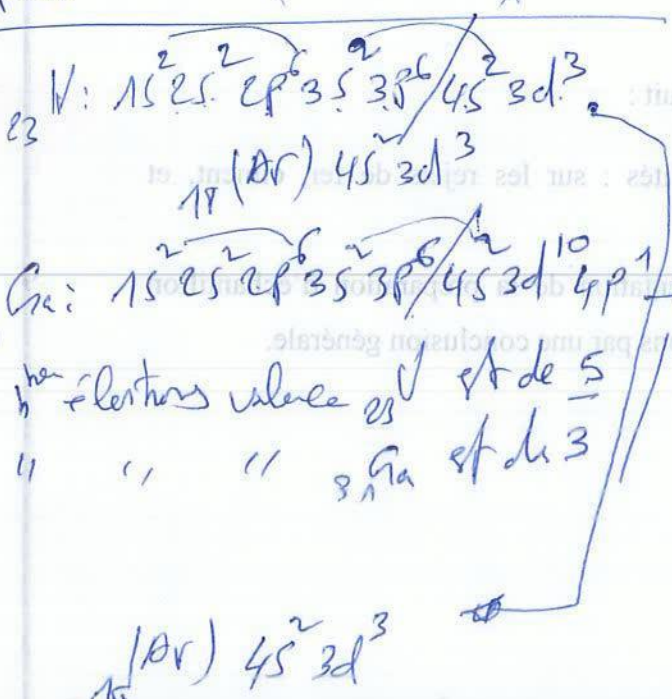 ₂₃V: 1s² 2s² 2p⁶ 3s² 3p⁶ / 4s² 3d³
₁₈(Ar) 4s² 3d³
Ga: 1s² 2s² 2p⁶ 3s² 3p⁶ / 4s² 3d¹⁰ 4p¹
nbre électrons valence ₂₃V est de 5
" " " ₃₁Ga est de 3
₁₈(Ar) 4s² 3d³